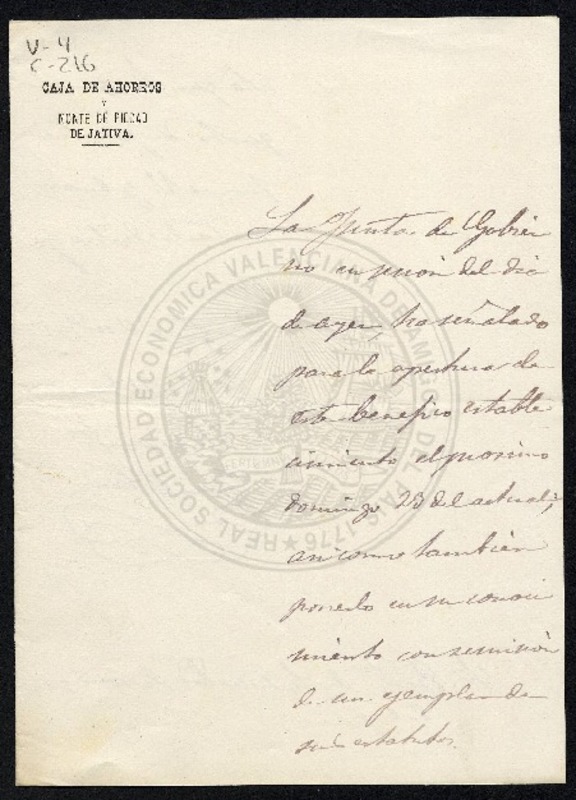 V-4
C-216
CAJA DE AHORROS
Y
MONTE DE PIEDAD
DE JATIVA.
La Junta de Gobier
no en sesión del dia
de ayer, ha señalado
para la apertura de
este benefico estable
cimiento el proximo
domingo 23 del actual;
asi como tambien
ponerlo en su conoci
miento con remisión
de un ejemplar de
sus estatutos.
REAL SOCIEDAD ECONOMICA VALENCIANA DE AMIGOS DEL PAIS 1776